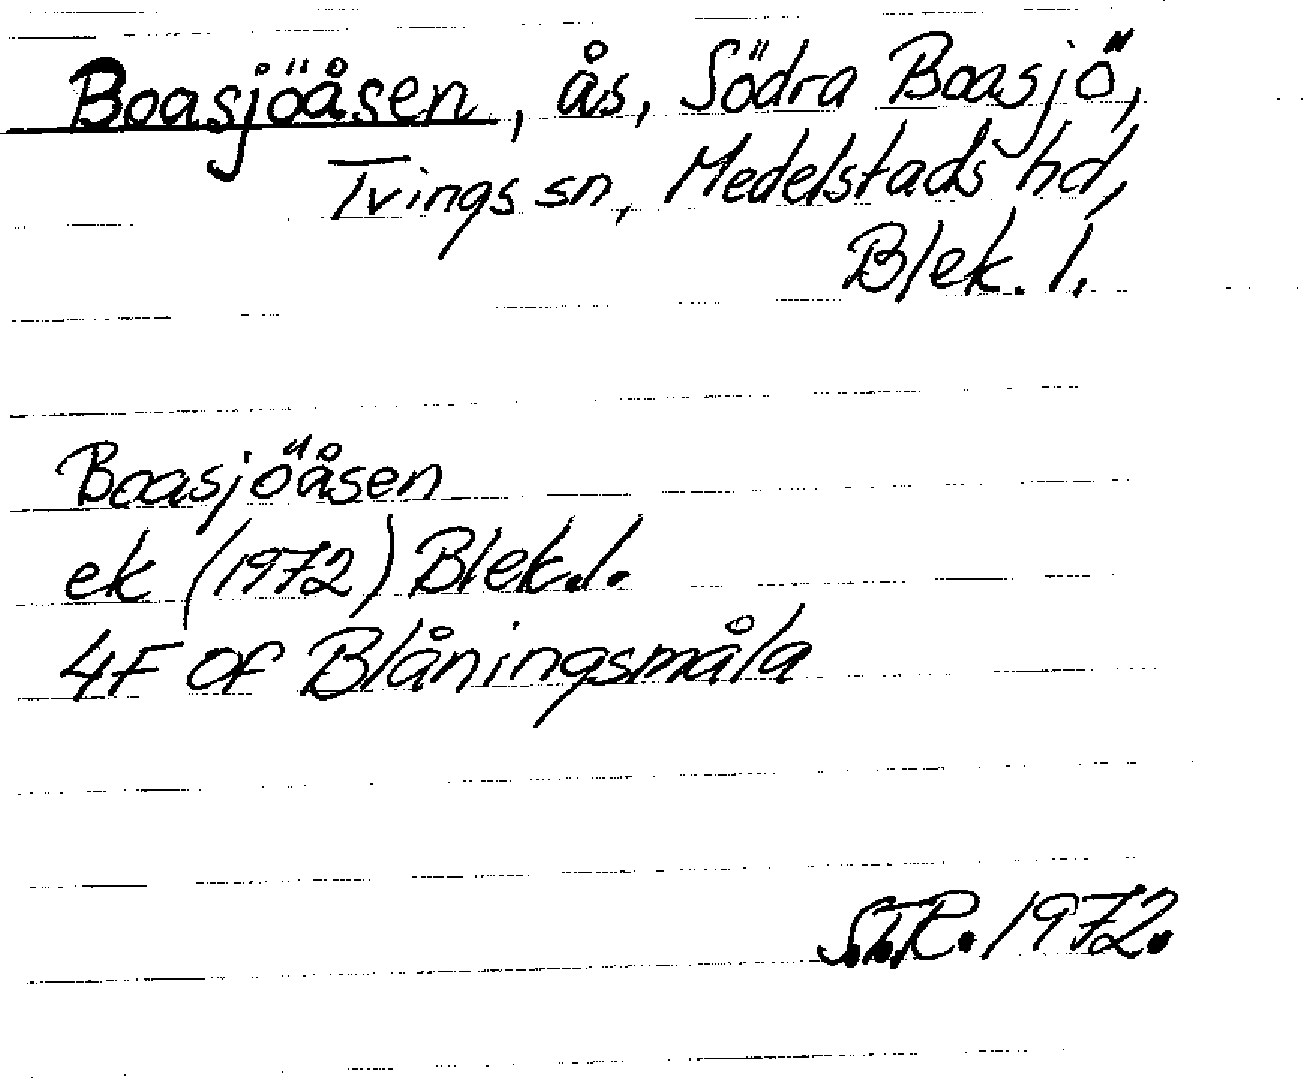 Boasjöåsen, ås, Södra Boasjö,
Tvings sn, Medelstads hd,
Blek. l.
Boasjöåsen
ek (1972) Blek. l.
4F 0f Blåningsmåla
S.T.R. 1972.